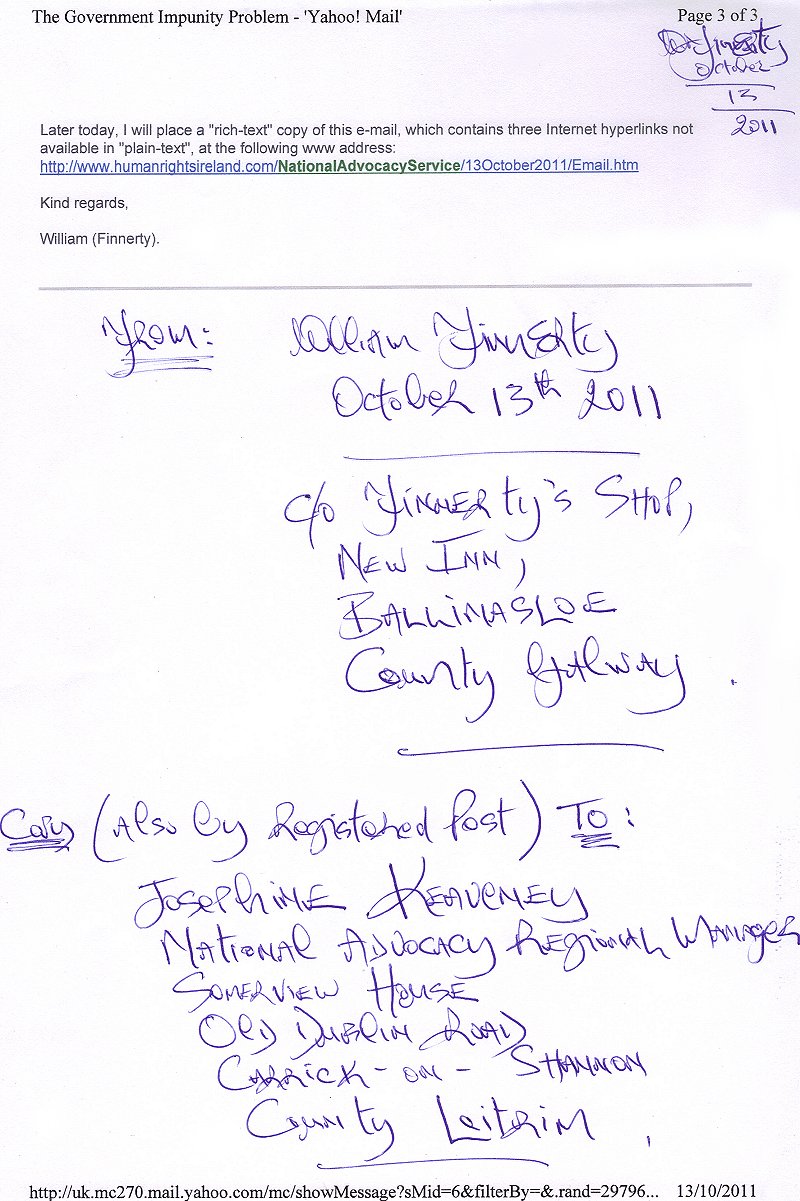 The Government Impunity Problem - 'Yahoo! Mail'
Page 3 of 3
Wm Finnerty
October
13
2011
Later today, I will place a "rich-text" copy of this e-mail, which contains three Internet hyperlinks not
available in "plain-text", at the following www address:
http://www.humanrightsireland.com/NationalAdvocacyService/13October2011/Email.htm
Kind regards,
William (Finnerty).
From: William Finnerty
October 13th 2011
c/o Finnerty's Shop,
New Inn,
Ballinasloe
County Galway.
Copy (Also by Registered Post) To:
Josephine Keaveney
National Advocacy Regional Manager
Somerview House
Old Dublin Road
Carrick-on-Shannon
County Leitrim,
http://uk.mc270.mail.yahoo.com/mc/showMessage?sMid=6&filterBy=&.rand=29796...
13/10/2011